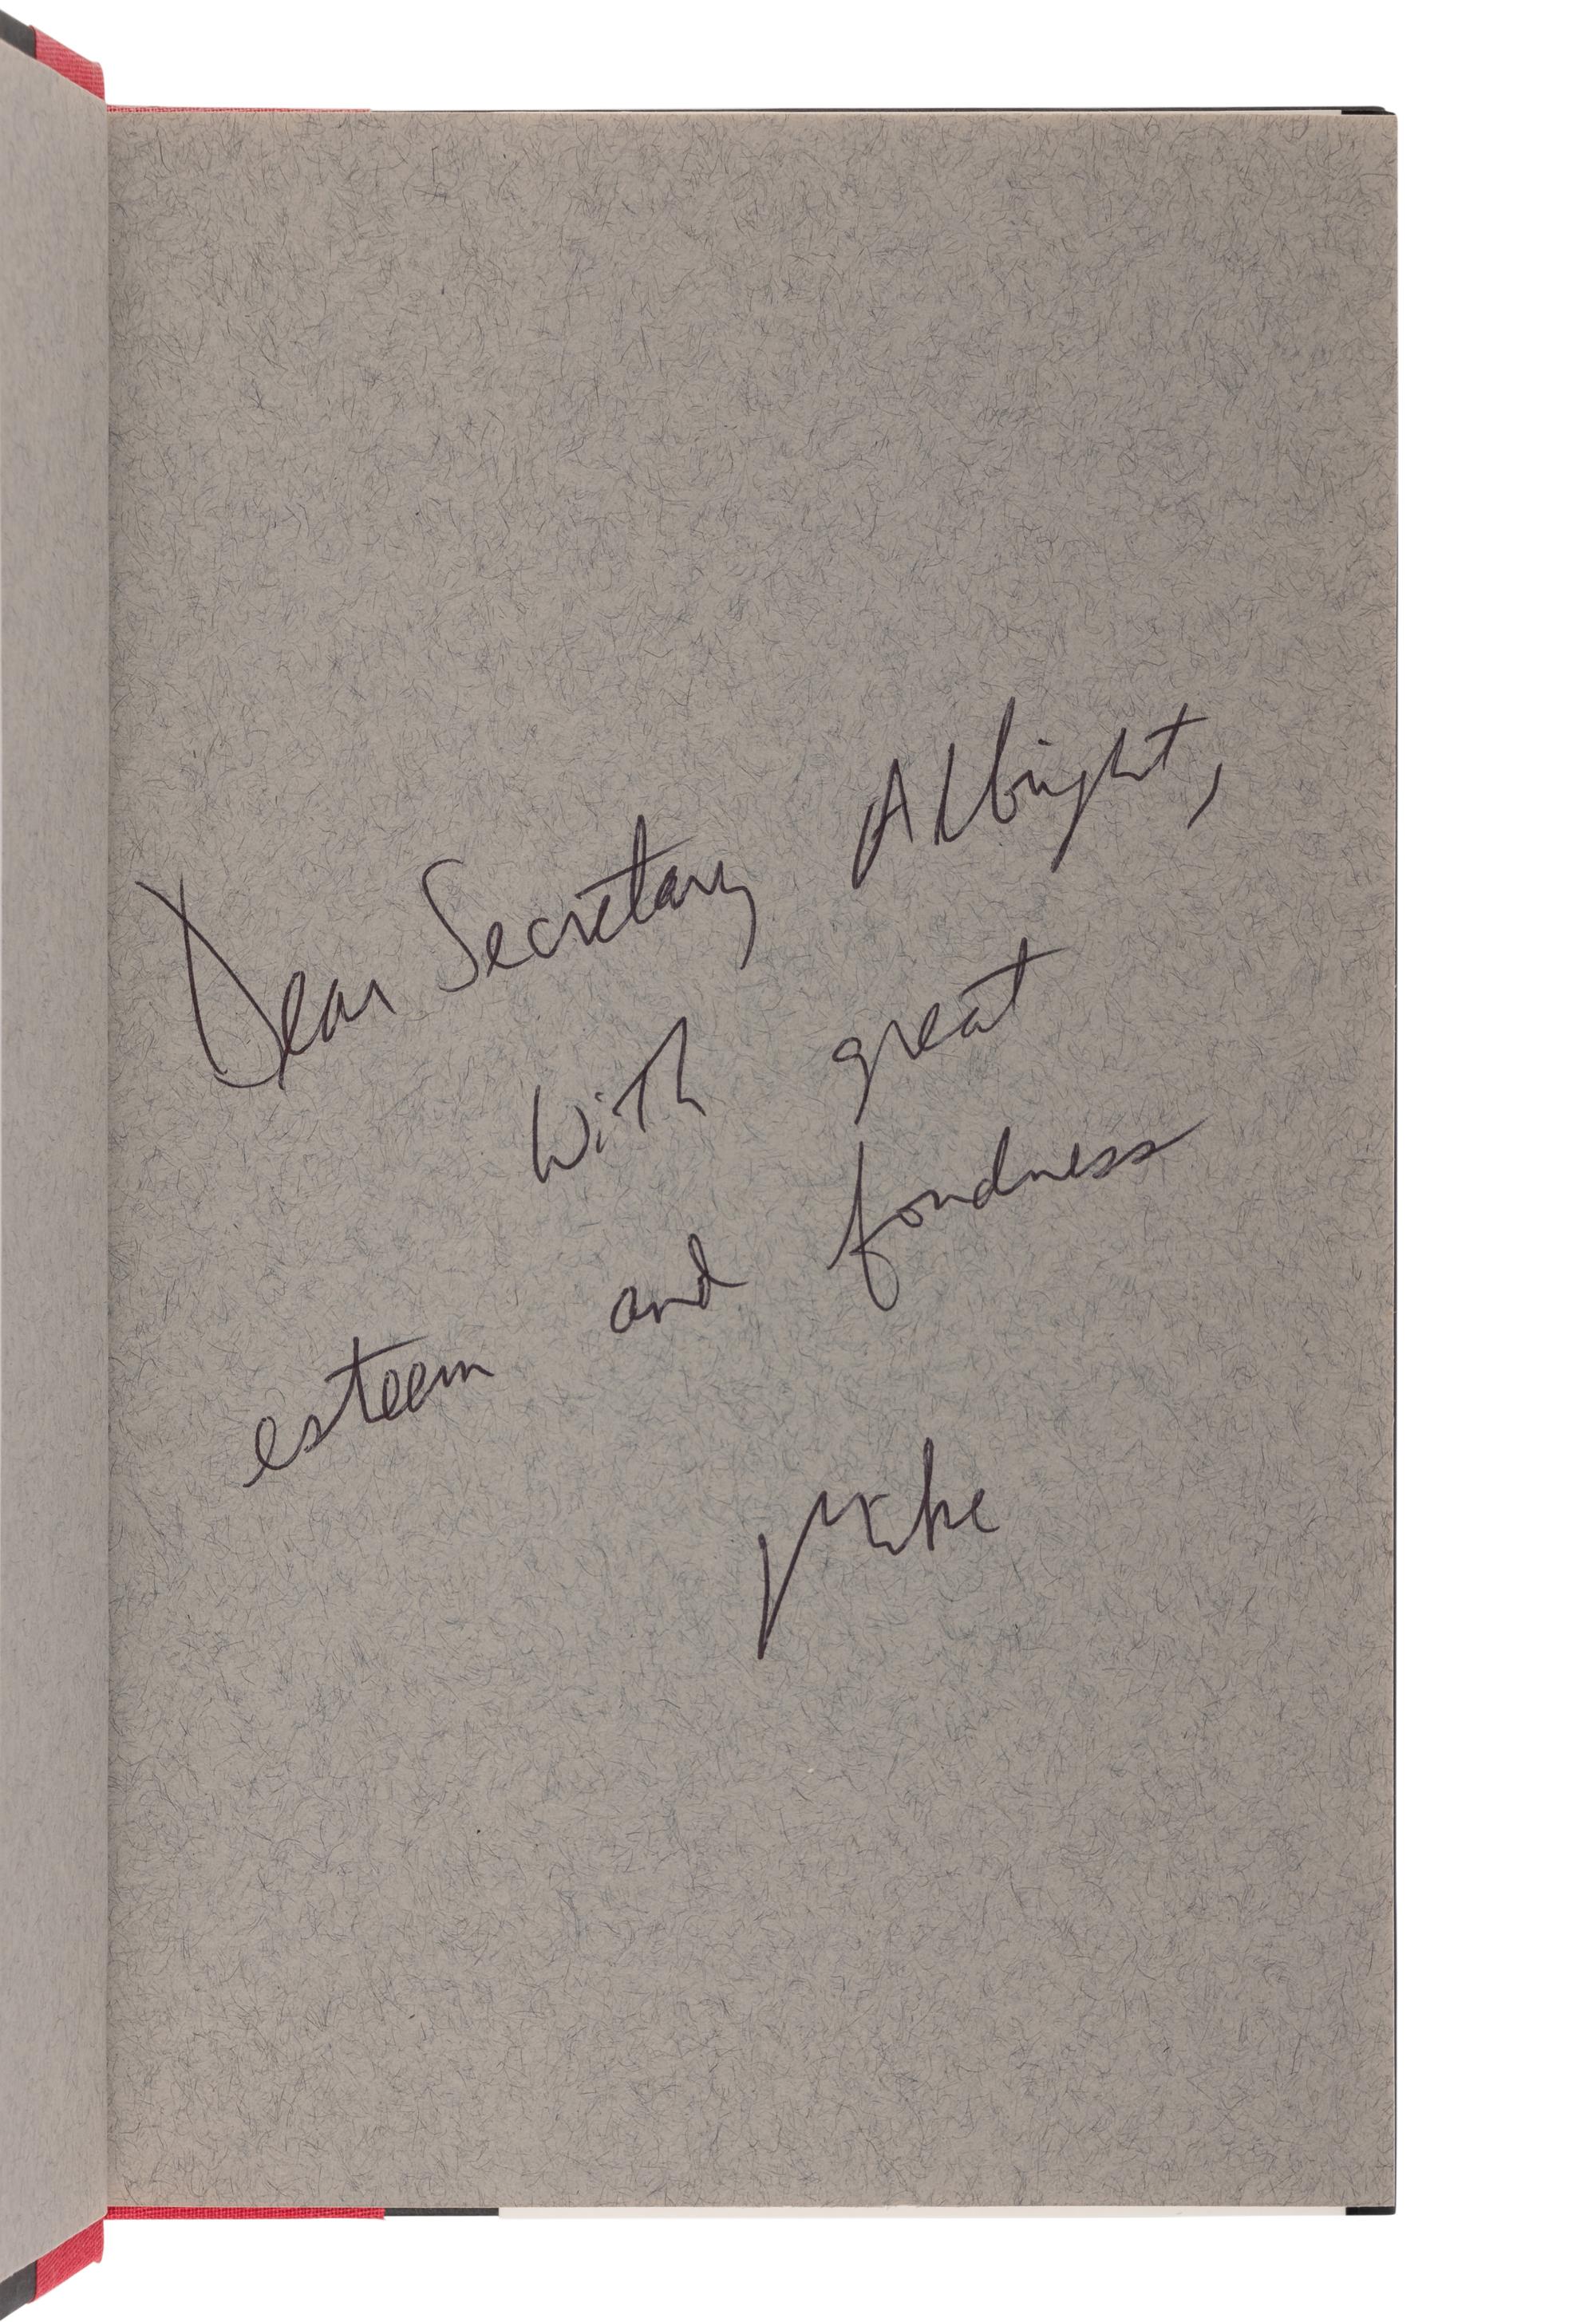 Dear Secretary Albright,
With great
esteem and fondness
Mike